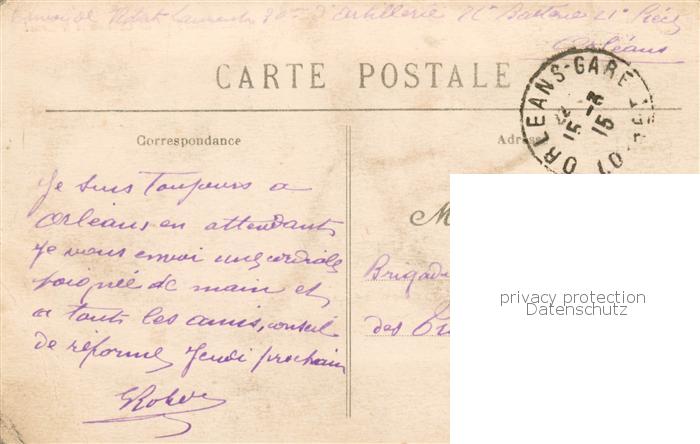 Envoi de Robert 30me d'Artillerie Batterie 21e Pièce
Orléans
CARTE POSTALE
ORLEANS-GARE LOIRET
15 -3
15
Correspondance
Adres
Je suis toujours a
Orléans en attendant
Je vous envoi une cordiale
poignée de main et
a tous les amis, conseil
de réforme Jeudi prochain
Robert
M
Brigadi
des
privacy protection
Datenschutz